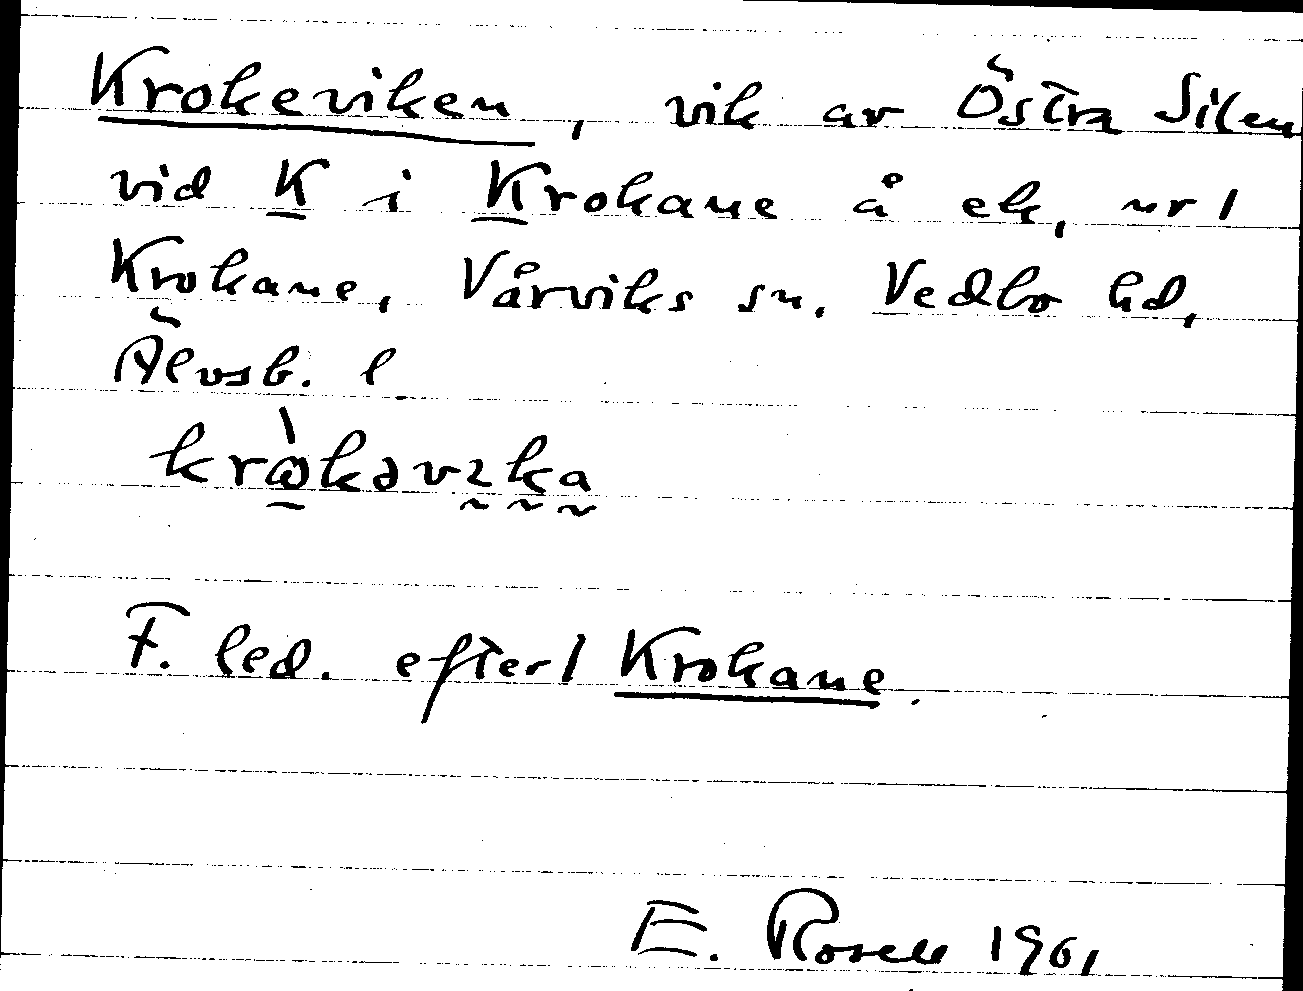 Krokeviken, vik av Östra Silen
vid K i Krokane å ek, nr 1
Krokane, Vårviks sn. Vedbo hd,
Älvsb. l
kròkəvıka
F. led. efterl Krokane.
E. Rosell 1961